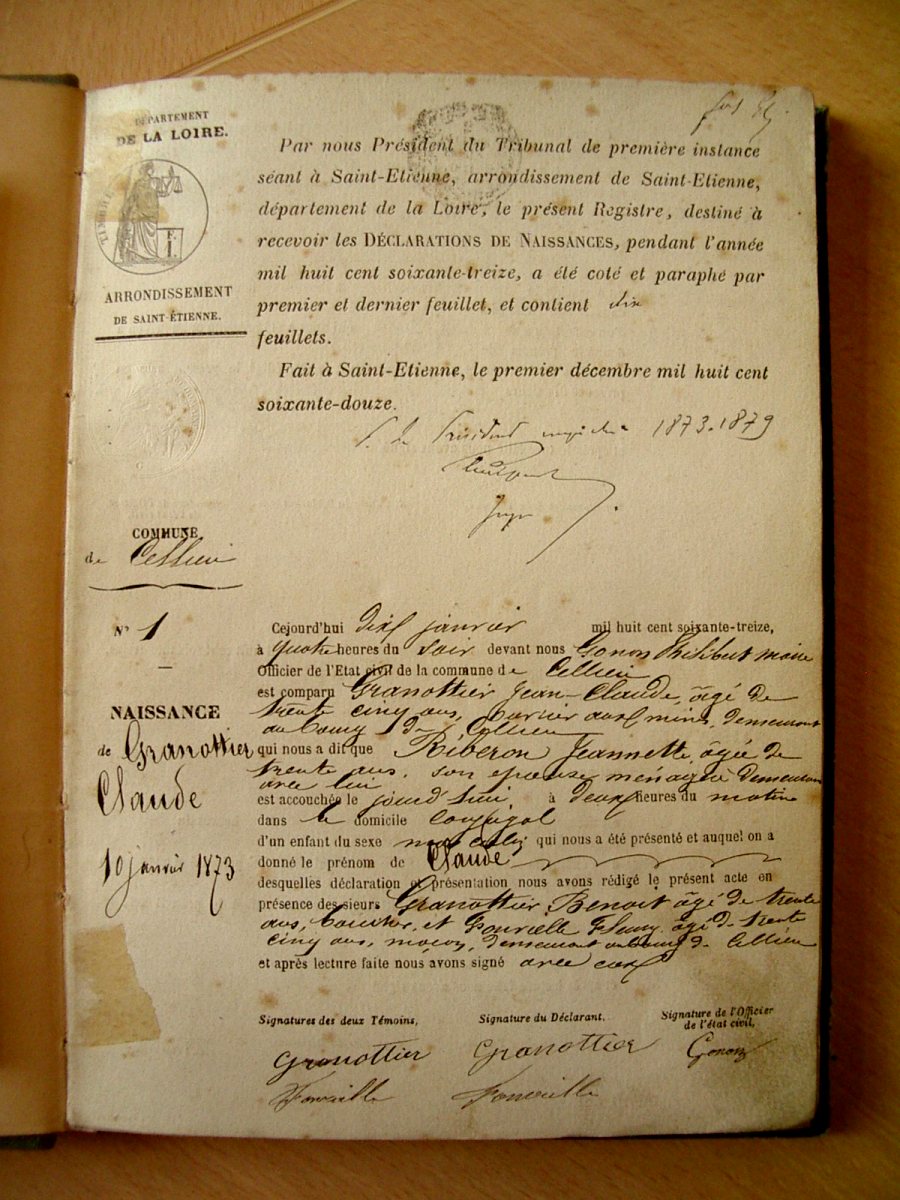 DÉPARTEMENT
DE LA LOIRE.
TIMBRE
ARRONDISSEMENT
DE SAINT-ÉTIENNE.
Par nous Président du Tribunal de première instance
séant à Saint-Etienne, arrondissement de Saint-Etienne,
département de la Loire, le présent Registre, destiné à
recevoir les DÉCLARATIONS DE NAISSANCES, pendant l'année
mil huit cent soixante-treize, a été coté et paraphé par
premier et dernier feuillet, et contient dix
feuillets.
Fait à Saint-Etienne, le premier décembre mil huit cent
soixante-douze.
Président 1873-1879
Juge
COMMUNE
de Cellieu
N° 1
NAISSANCE
de Granottier
Claude
10 janvier 1873
Cejourd'hui dix janvier mil huit cent soixante-treize,
à quatre heures du soir devant nous Gonon Philibert maire
Officier de l'Etat civil de la commune de Cellieu
est comparu Granottier Jean-Claude, âgé de
trente cinq ans, ouvrier aux mines, demeurant
au bourg de Cellieu
qui nous a dit que Riberon Jeannette, âgée de
trente ans, son epouse menagère demeurant
avec lui
est accouchée le jourd'hui, à deux heures du matin
dans le domicile conjugal
d'un enfant du sexe masculin qui nous a été présenté et auquel on a
donné le prénom de Claude
desquelles déclaration et présentation nous avons rédigé le présent acte en
présence des sieurs Granottier Benoit âgé de trente
ans, et Fleury, âgé de trente
cinq ans, maçon, demeurant au bourg de Cellieu
et après lecture faite nous avons signé avec eux
Signatures des deux Témoins,
Signature du Déclarant.
Signature de l'Officier
de l'état civil,
Granottier
Granottier
Gonon